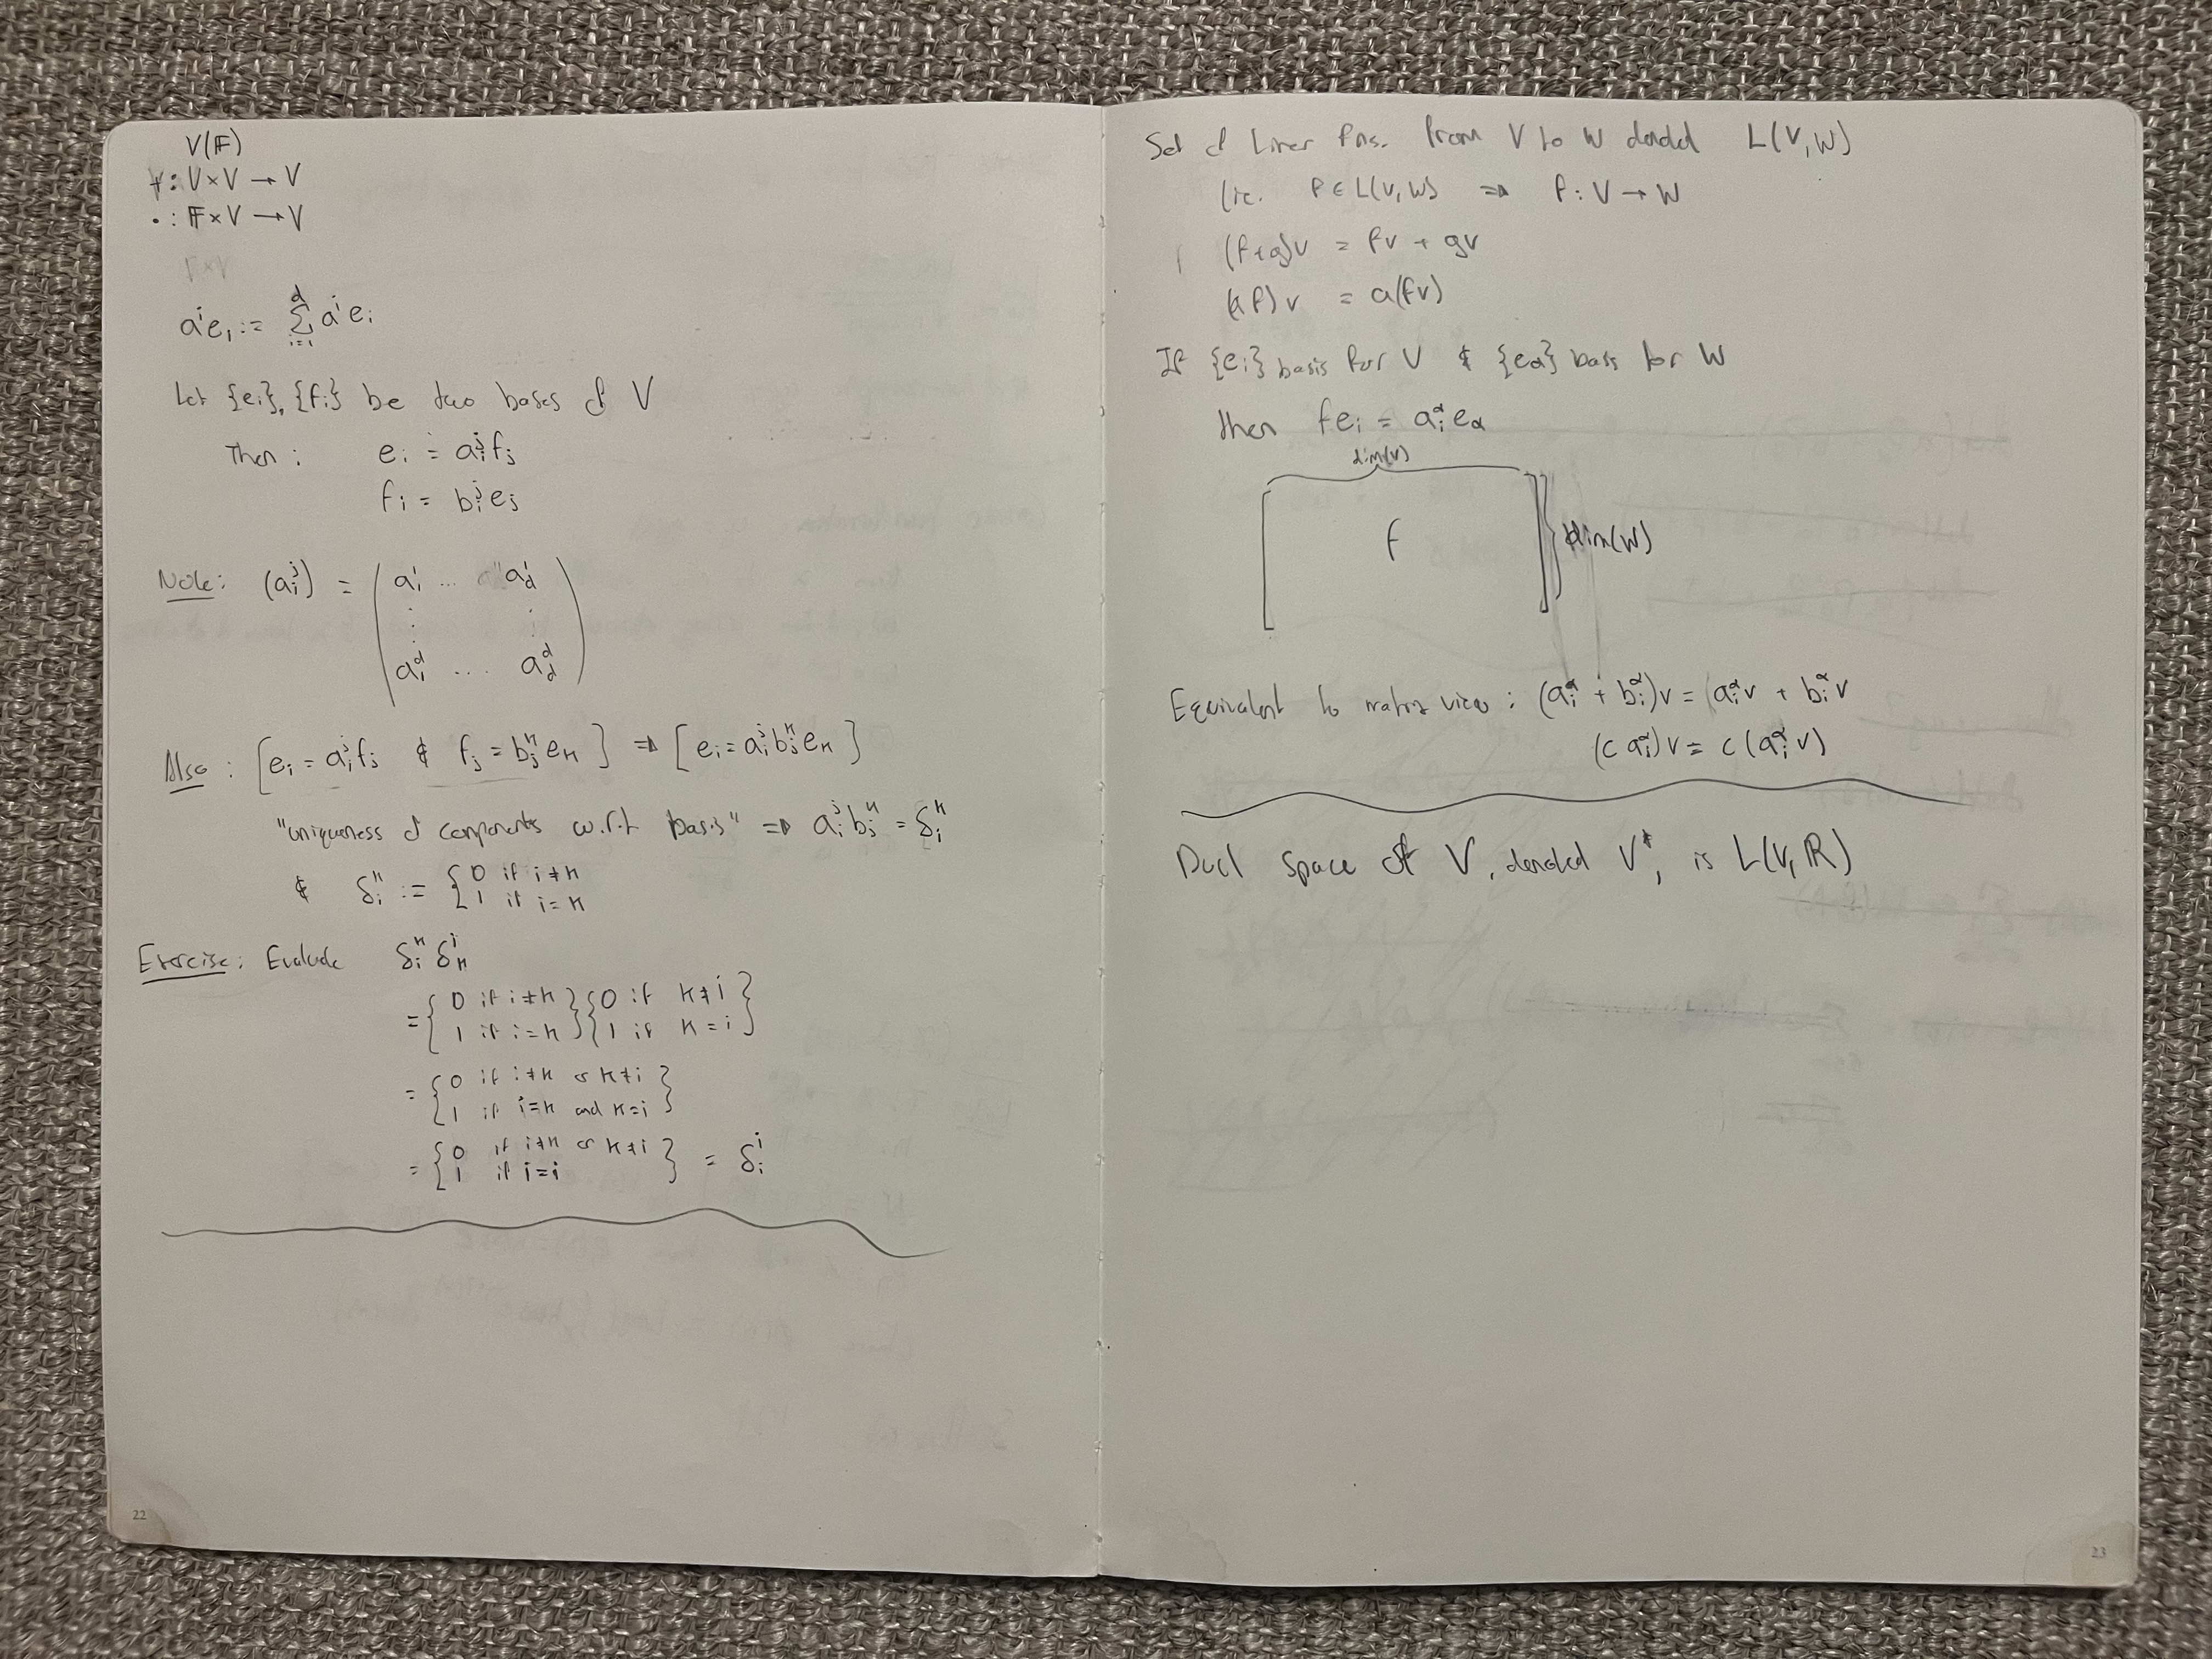 V(F)
+: V×V → V
• : F×V → V
F×V
aⁱeᵢ := ∑ᵢ₌₁ᵈ aⁱeᵢ
Let {eᵢ}, {fᵢ} be two bases of V
Then : eᵢ = aᵢʲfⱼ
fᵢ = bᵢʲeⱼ
Note: (aᵢʲ) = ( a₁¹ ... a_d¹
⋮ ⋮
a₁ᵈ ... a_dᵈ )
Also : [eᵢ = aᵢʲfⱼ & fⱼ = bⱼᵏeₖ] ⇒ [eᵢ = aᵢʲbⱼᵏeₖ]
"uniqueness of components w.r.t basis" ⇒ aᵢʲbⱼᵏ = δᵢᵏ
& δᵢᵏ := {0 if i≠k
1 if i=k
Exercise: Evaluate δᵢᵏδₖʲ
= {0 if i≠k}{0 if k≠j}
{1 if i=k}{1 if k=j}
= {0 if i≠k or k≠j}
{1 if i=k and k=j}
= {0 if i≠k or k≠j} = δᵢʲ
{1 if j=i
22
Set of linear fns. from V to W denoted L(V,W)
(ie. f∈L(V,W) ⇒ f: V→W
(f+g)v = fv + gv
(af)v = a(fv)
If {eᵢ} basis for V & {e_α} basis for W
then feᵢ = aᵢ^αe_α
dim(V)
f
dim(W)
Equivalent to matrix view : (aᵢ^α + bᵢ^α)v = (aᵢ^αv + bᵢ^αv
(c aᵢ^α)v = c(aᵢ^αv)
Dual space of V, denoted V*, is L(V,R)
23